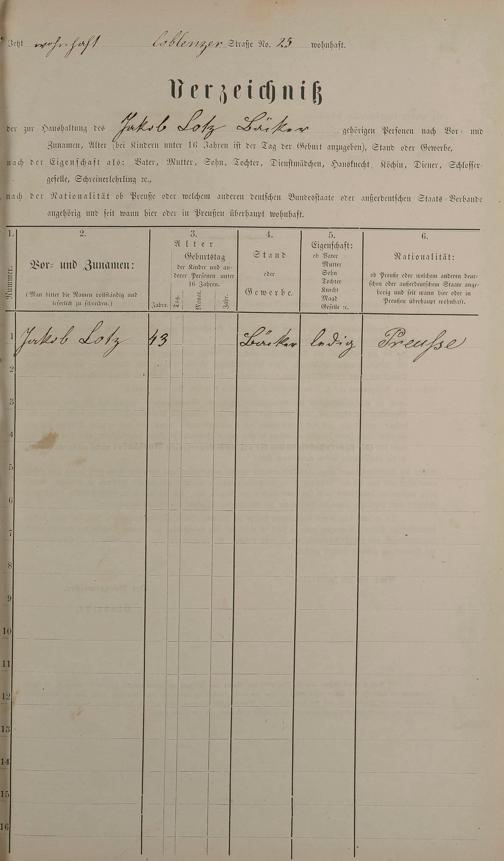 Jetzt wohnhaft Coblenzer Straße No. 25 wohnhaft.
Verzeichniß
der zur Haushaltung des Jakob Lotz Bäcker gehörigen Personen nach Vor- und
Zunamen, Alter (bei Kindern unter 16 Jahren ist der Tag der Geburt anzugeben), Stand oder Gewerbe,
nach der Eigenschaft als: Vater, Mutter, Sohn, Tochter, Dienstmädchen, Hausknecht, Köchin, Diener, Schlosser-
geselle, Schreinerlehrling ꝛc.,
nach der Nationalität ob Preuße oder welchem anderen deutschen Bundesstaate oder außerdeutschen Staats-Verbande
angehörig und seit wann hier oder in Preußen überhaupt wohnhaft.
1.
Nummer.
2.
Vor- und Zunamen:
(Man bittet die Namen vollständig und
leserlich zu schreiben.)
3.
Alter
Geburtstag
der Kinder und an-
derer Personen unter
16 Jahren.
Jahre. Tag. Monat. Jahr.
4.
Stand
oder
Gewerbe.
5.
Eigenschaft:
ob Vater
Mutter
Sohn
Tochter
Knecht
Magd
Geselle ꝛc.
6.
Nationalität:
ob Preuße oder welchem anderen deut-
schen oder außerdeutschen Staate ange-
hörig und seit wann hier oder in
Preußen überhaupt wohnhaft.
1 Jakob Lotz 43 Bäcker ledig Preuße
2
3
4
5
6
7
8
9
10
11
12
13
14
15
16